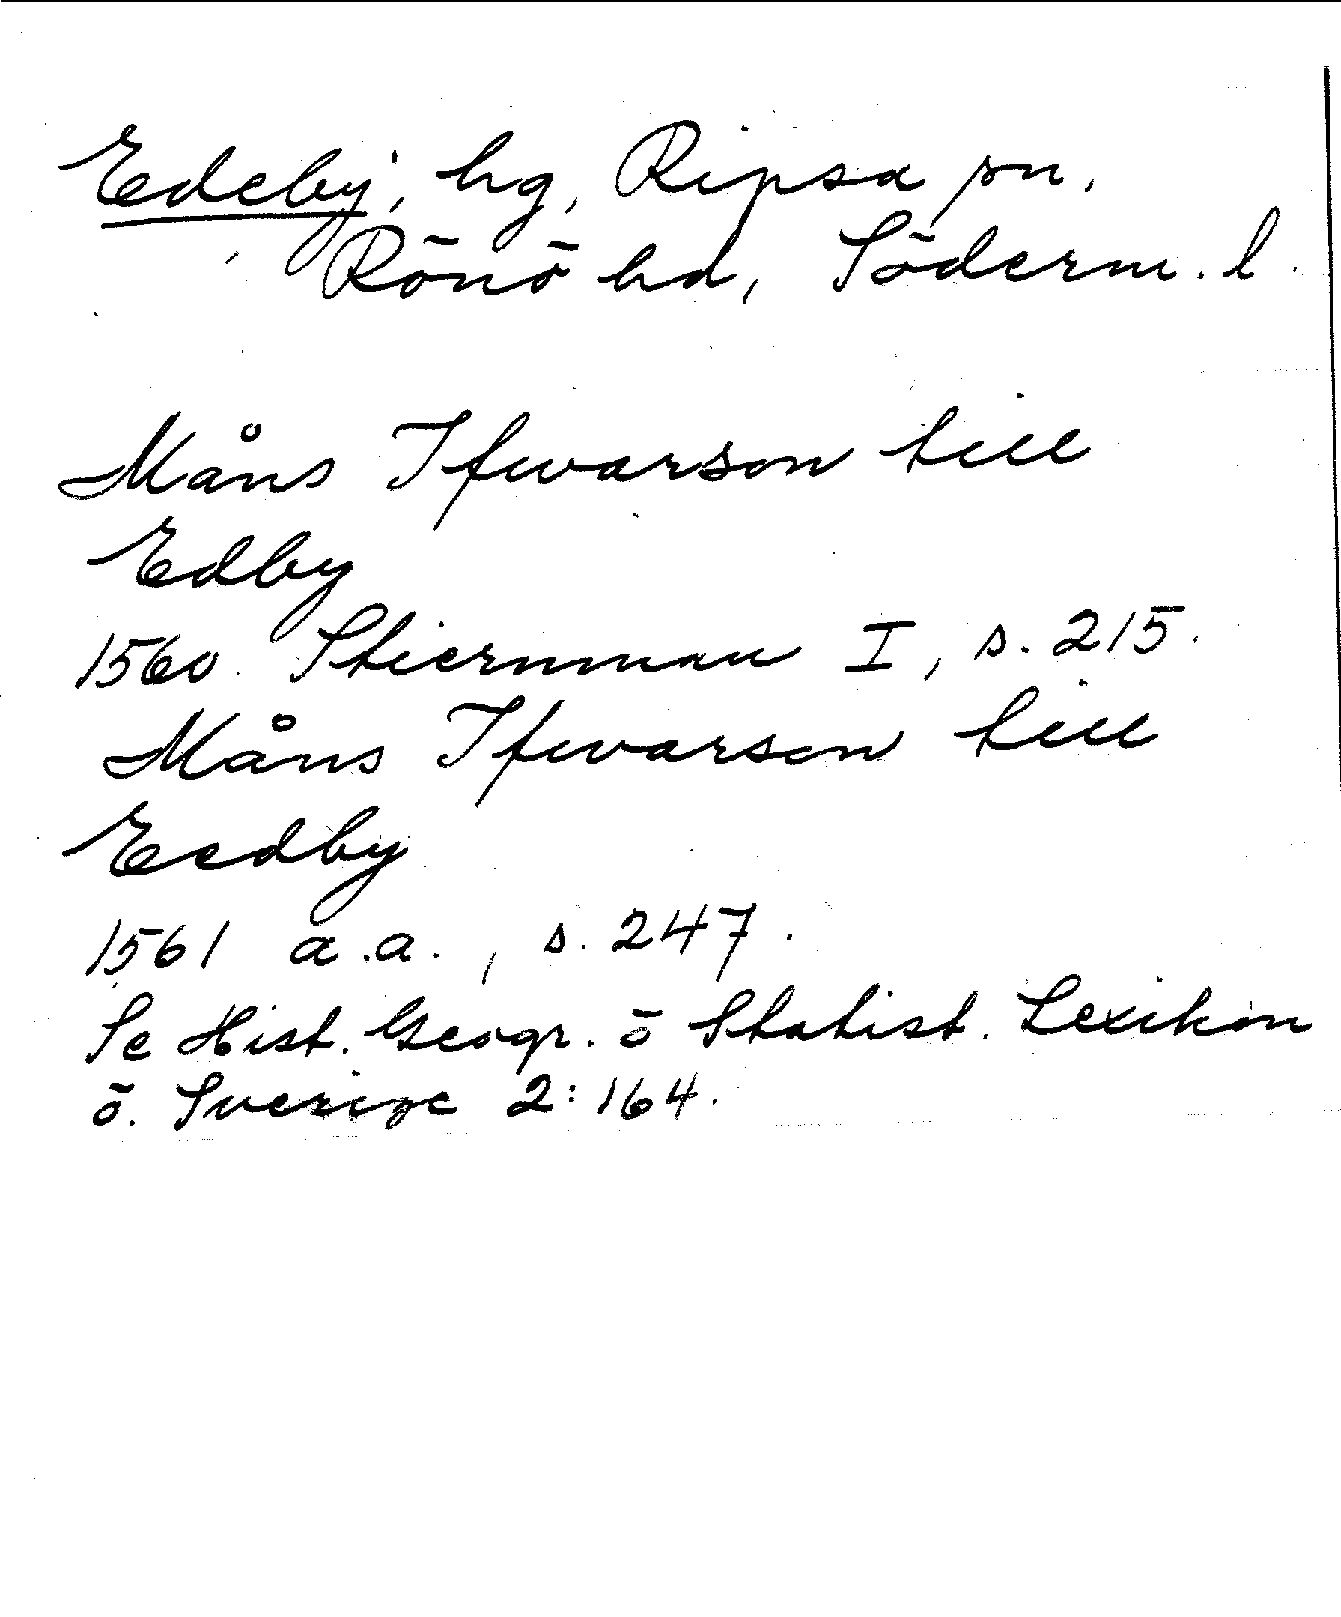 Edeby, hg, Ripsa sn,
Rönö hd, Söderm. l.
Måns Ifwarson till
Edby
1560. Stiernman I, s. 215.
Måns Ifwarson till
Eedby
1561 a.a., s. 247.
Se Hist. Geogr. ö Statist. Lexikon
ö. Sverige 2:164.